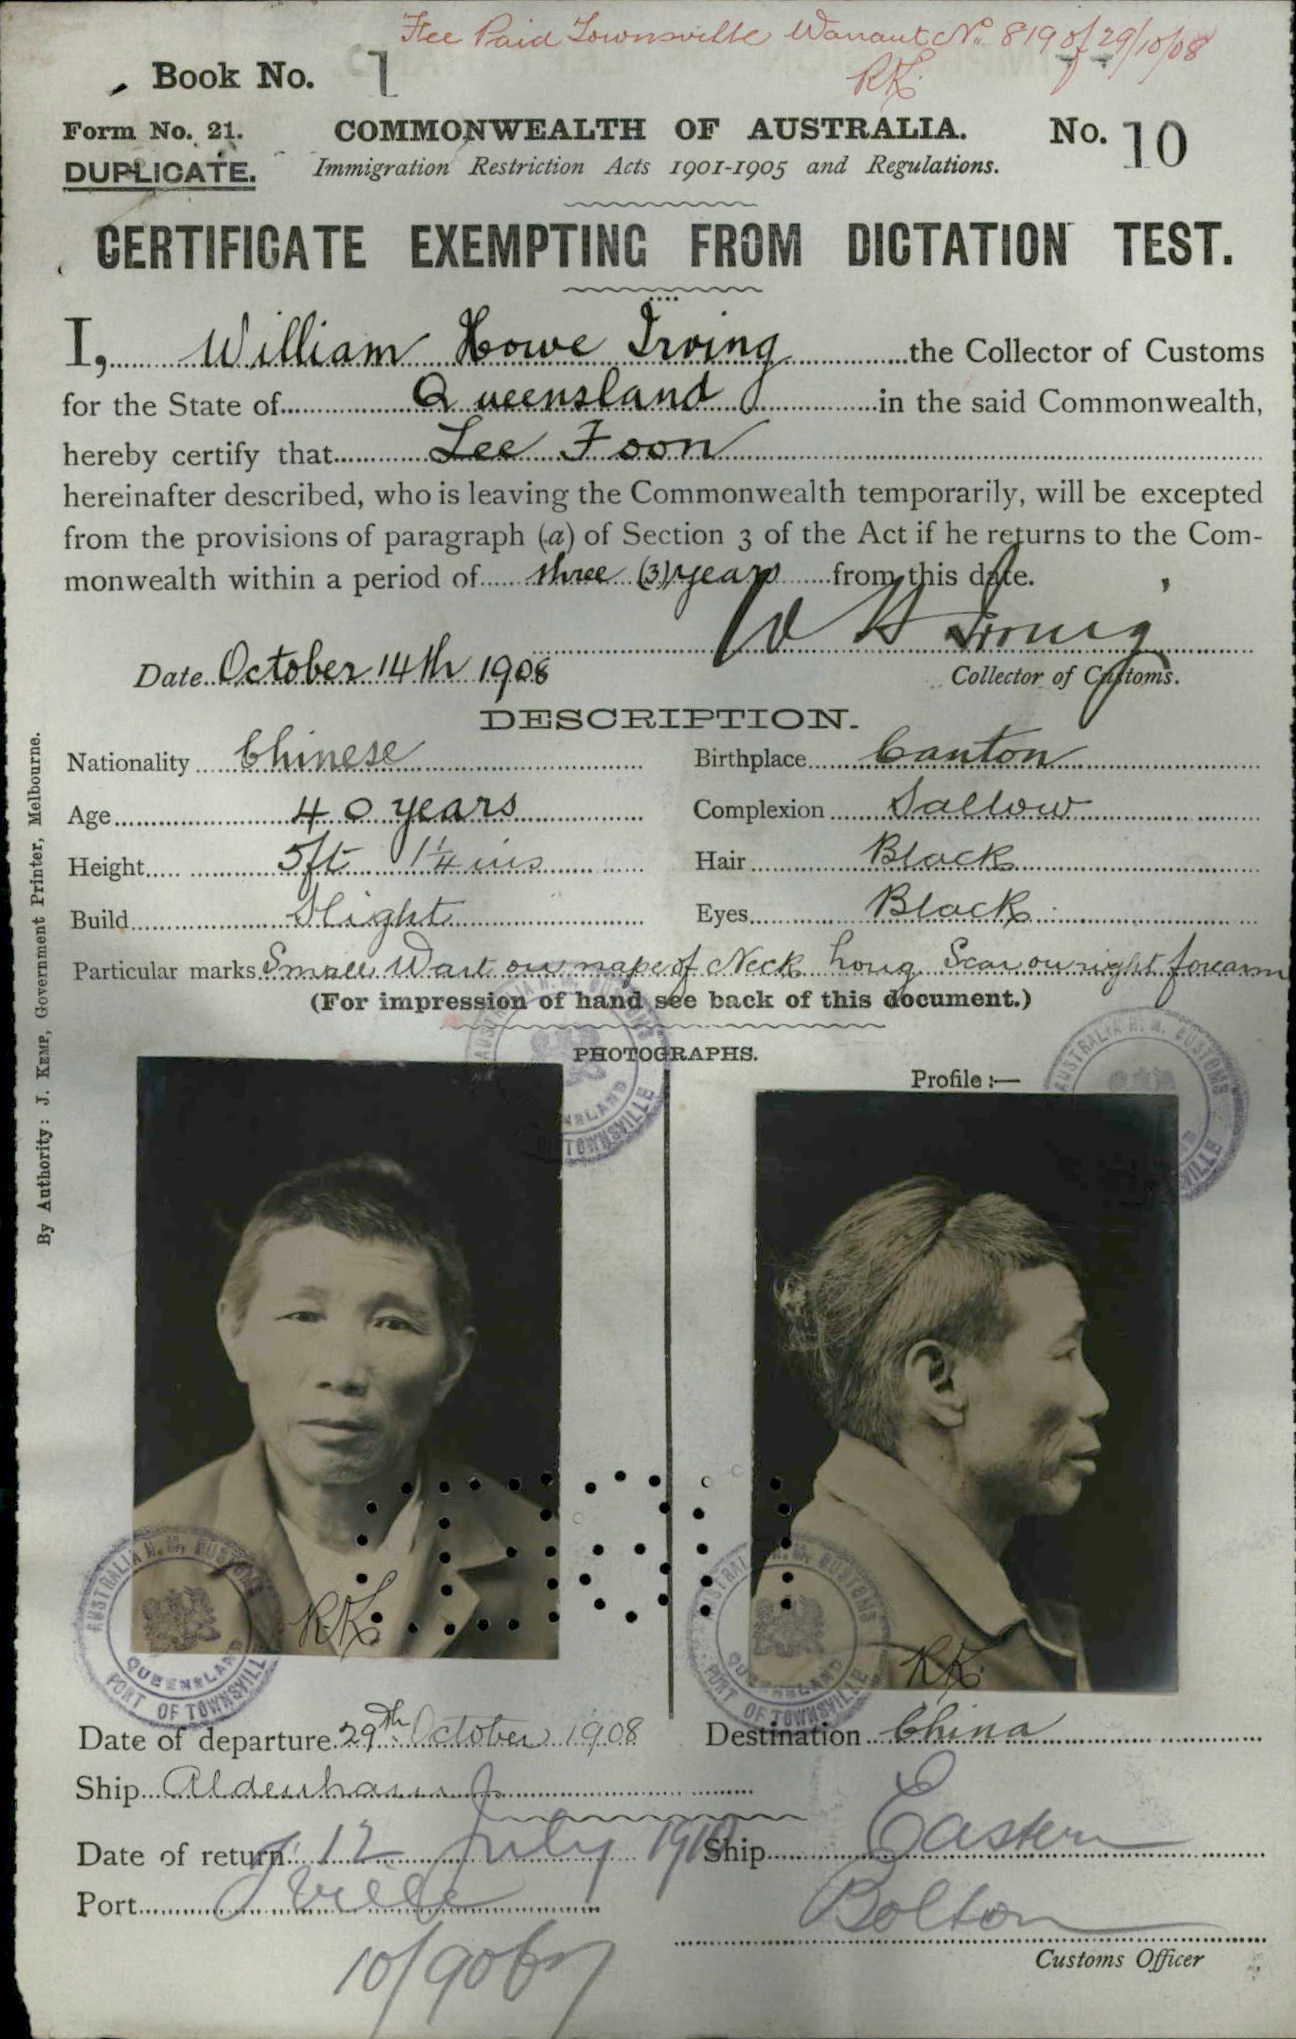 Fee Paid Townsville Warrant No. 819 of 29/10/08
RK.
Book No. 1
Form No. 21. COMMONWEALTH OF AUSTRALIA. No. 10
DUPLICATE. Immigration Restriction Acts 1901-1905 and Regulations.
CERTIFICATE EXEMPTING FROM DICTATION TEST.
I, William Howe Irving the Collector of Customs
for the State of Queensland in the said Commonwealth,
hereby certify that Lee Foon
hereinafter described, who is leaving the Commonwealth temporarily, will be excepted
from the provisions of paragraph (a) of Section 3 of the Act if he returns to the Com-
monwealth within a period of three (3) years from this date.
W H Irving
Date October 14th 1908 Collector of Customs.
DESCRIPTION.
Nationality Chinese Birthplace Canton
Age 40 years Complexion Sallow
Height 5ft 1 1/4 ins Hair Black
Build Slight Eyes Black
Particular marks Small Wart on nape of Neck long Scar on right forearm
(For impression of hand see back of this document.)
PHOTOGRAPHS.
Profile :—
AUSTRALIA H. M. CUSTOMS QUEENSLAND PORT OF TOWNSVILLE
AUSTRALIA H. M. CUSTOMS TOWNSVILLE
RK.
RK.
AUSTRALIA H. M. CUSTOMS QUEENSLAND PORT OF TOWNSVILLE
AUSTRALIA H. M. CUSTOMS QUEENSLAND PORT OF TOWNSVILLE
Date of departure 29th October 1908 Destination China
Ship Aldenham
Date of return 12 July 1910 Ship Eastern
Port Tville Bolton
Customs Officer
By Authority: J. KEMP, Government Printer, Melbourne.